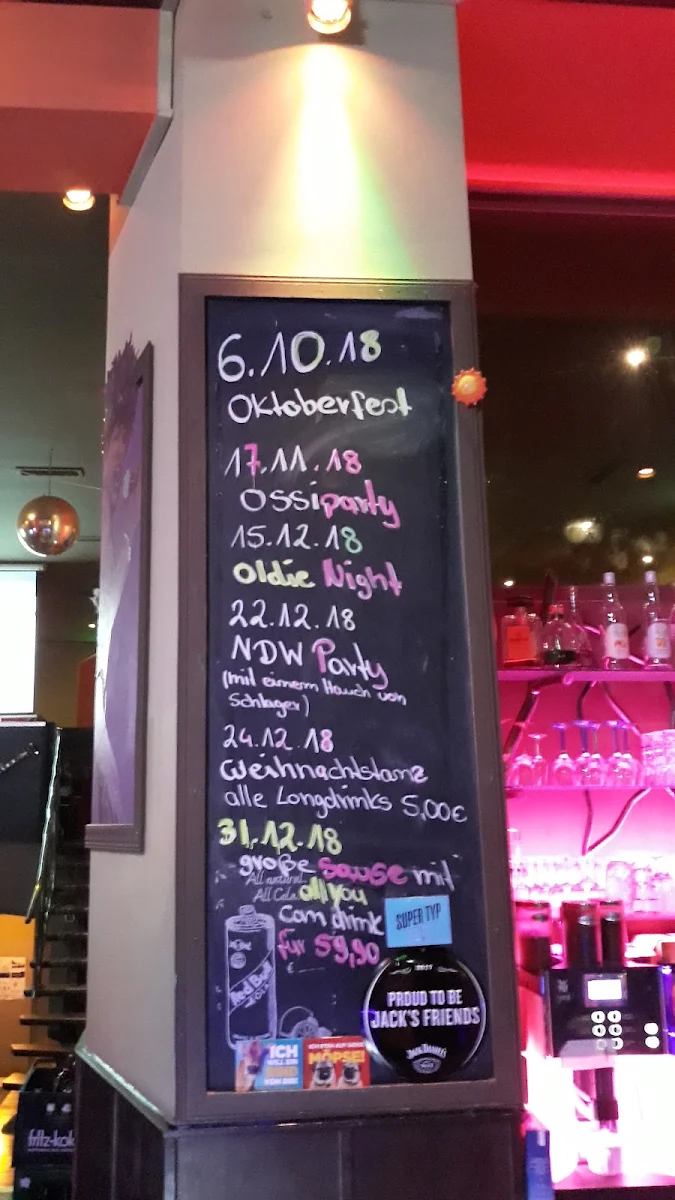 6.10.18
Oktoberfest
17.11.18
Ossiparty
15.12.18
Oldie Night
22.12.18
NDW Party
(mit einem Hauch von
Schlager)
24.12.18
Weihnachtstanz
alle Longdrinks 5,00€
31.12.18
große Sause mit
All natural
All Cola
all you
Can drink
für 59,90
€
Red Bull
SUPER TYP
2017
PROUD TO BE
JACK'S FRIENDS
JACK DANIEL'S
ICH
WILL EIN
VON DIR!
ICH STEH AUF DEINE
MÖPSE!
fritz-kol